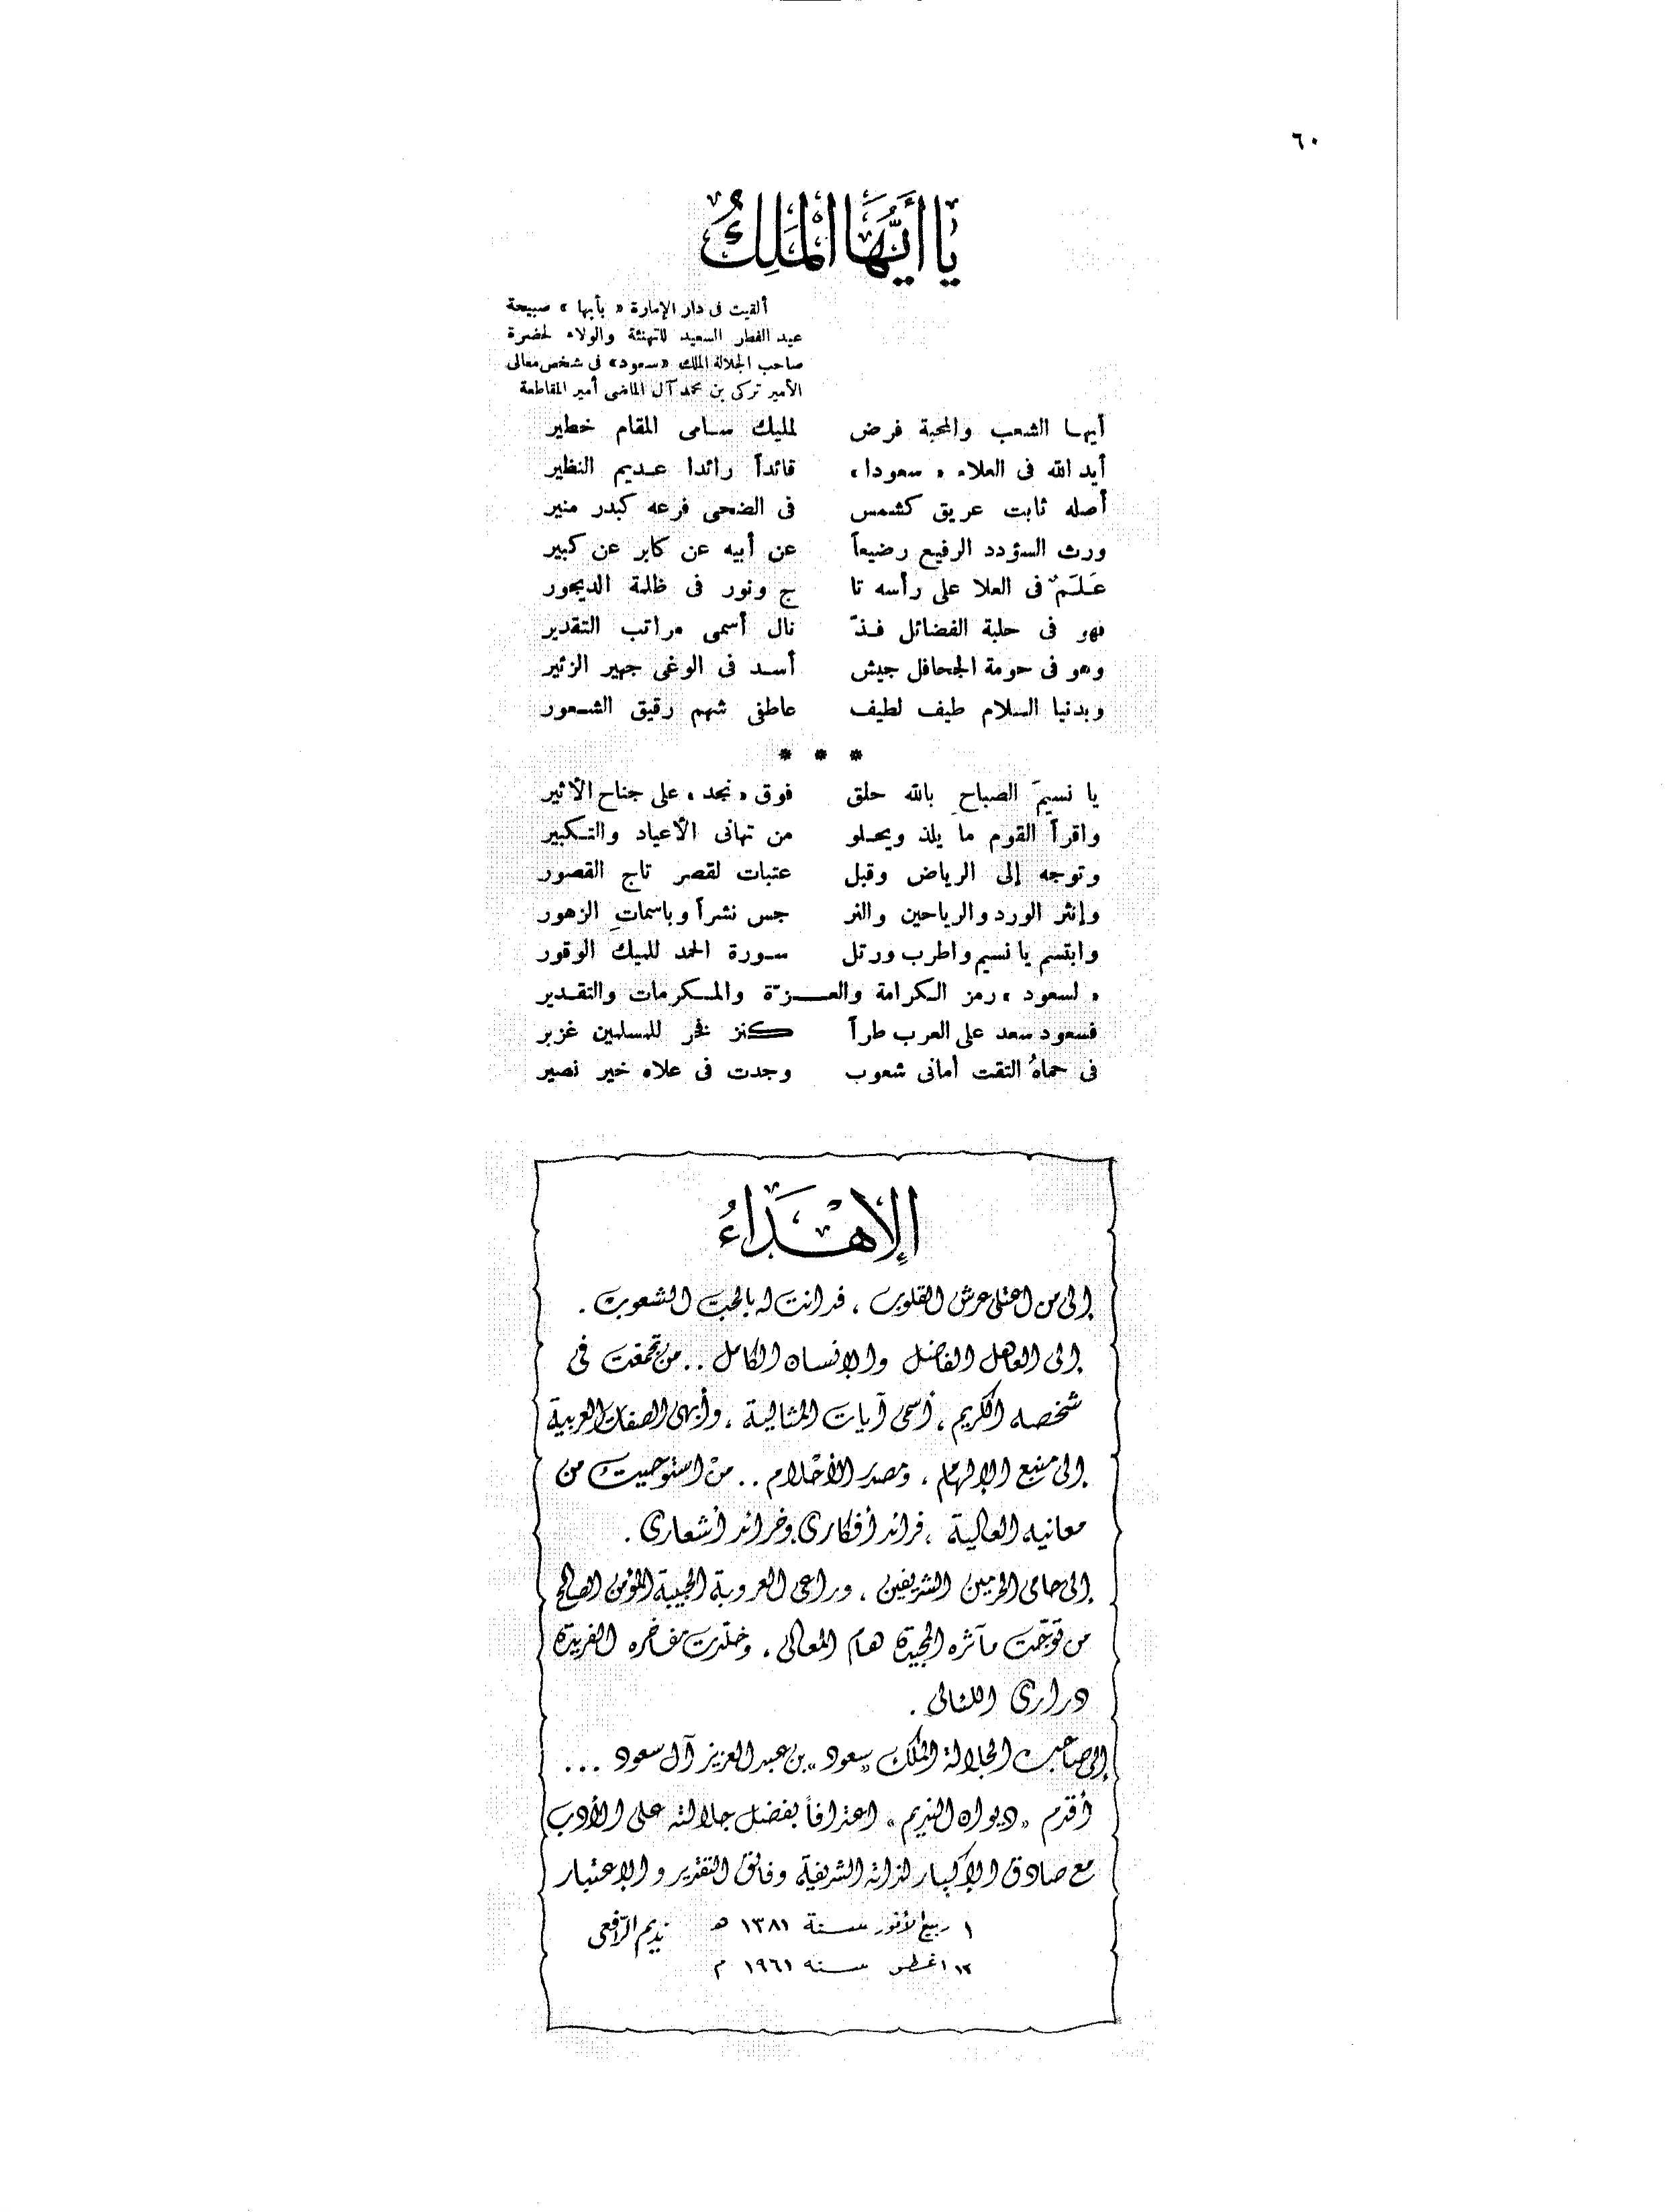 ٦٠
يَا أَيُّهَا الْمَلِكُ
ألقيت فى دار الإمارة « بأبها » صبيحة
عيد الفطر السعيد للتهنئة والولاء لحضرة
صاحب الجلالة الملك «سعود» فى شخص معالى
الأمير تركى بن محمد آل الماضى أمير المقاطعة
أيهـا الشعب والمحبة فرض لمليك سـامى المقام خطير
أيد الله فى العلاء « سعودا » قائداً رائدا عـديم النظير
أصله ثابت عريق كشمس فى الضحى فرعه كبدر منير
ورث السؤدد الرفيع رضيعاً عن أبيه عن كابر عن كبير
عَـلَـمٌ فى العلا على رأسه تا ج ونور فى ظلمة الديجور
فهو فى حلبة الفضائل فـذّ نال أسمى مراتب التقدير
وهو فى حومة الجحافل جيش أسـد فى الوغى جهير الزئير
وبدنيا السلام طيف لطيف عاطفى شهم رقيق الشـعور
* * *
يا نسيمَ الصباحِ بالله حلق فوق « نجد » على جناح الأثير
واقرأ القوم ما يلذ ويحـلو من تهانى الأعياد والتـكبير
وتوجه إلى الرياض وقبل عتبات لقصر تاج القصور
وإنثر الورد والرياحين والنر جس نشراً وباسماتِ الزهور
وابتسم يا نسيم واطرب ورتل سـورة الحمد للمليك الوقور
« لسعود » رمز الـكرامة والعـــزّة والمـكرمات والتقـدير
فسعود سعد على العرب طراً كنز فخر للمسلمين غزير
فى حماهُ التقت أمانى شعوب وجدت فى علاه خير نصير
الإِهْـدَاءُ
إلى من اعتلى عرش القلوب ، فدانت له بالحب الشعوب .
إلى العاهل الفاضل والإنسان الكامل .. من تجمعت فى
شخصه الكريم ، أسمى آيات المثالية ، وأبهى الصفات العربية
إلى منبع الإلهام ، ومصدر الأحلام .. من استوحيت من
معانيه العالية ، فرائد أفكارى وخرائد أشعارى .
إلى حامى الحرمين الشريفين ، وراعى العروبة الحبيبة المؤمن الصالح
من توّجت مآثره المجيدة هام المعالى ، وخلّدت مفاخره الفريدة
درارى اللئالى .
إلى صاحب الجلالة الملك «سعود» بن عبد العزيز آل سعود ...
أقدم « ديوان النديم » اعترافاً بفضل جلالته على الأدب
مع صادق الإكبار لذاته الشريفة وفائق التقدير والإعتبار
١ ربيع الأنور سـنة ١٣٨١ هـ نديم الرّافعى
١٢ اغسطس سـنه ١٩٦١ م